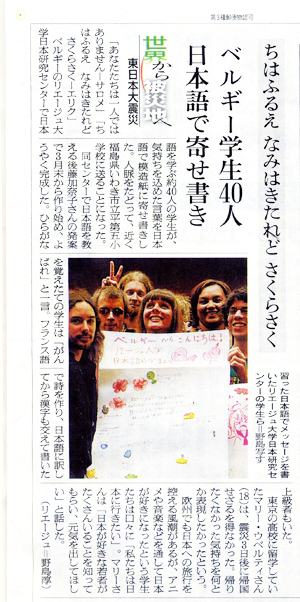 第3種郵便物認可
ちはふるえ なみはきたれど さくらさく
ベルギー学生40人
日本語で寄せ書き
世界から被災地へ
東日本大震災
「あなたたちは一人では
ありません―サロメ」「ち
はふるえ　なみはきたれど
さくらさく―エリク」
ベルギーのリエージュ大
学日本研究センターで日本
語を学ぶ約40人の学生が、
気持ちを込めた言葉を日本
語で模造紙に寄せ書きし
た。人脈をたどって、近く
福島県いわき市立平第五小
学校に送ることになった。
同センターで日本語を教
える後藤加奈子さんの発案
で3月末から作り始め、よ
うやく完成した。ひらがな
を覚えたての学生は「がん
ばれ」と一言。フランス語
で詩を作り、日本語に訳し
てから漢字も交えて書いた
上級者もいた。
東京の高校に留学してい
たマリー・ウベルティさん
(18)は、震災3日後に帰国
させざるを得なかった。帰り
たくなかった気持ちを何と
か表現したかったという。
欧州でも日本への旅行を
控える風潮があるが、アニ
メや音楽などを通して日本
が好きになったという学生
たちは口々に「私たちは日
本に行きたい」。マリーさ
んは「日本が好きな若者が
たくさんいることを知って
もらい、元気を出してほし
い」と話した。
（リエージュ＝野島淳）
習った日本語でメッセージを書
いたリエージュ大学日本研究セ
ンターの学生ら＝野島写す
ベルギーからこんにちは！